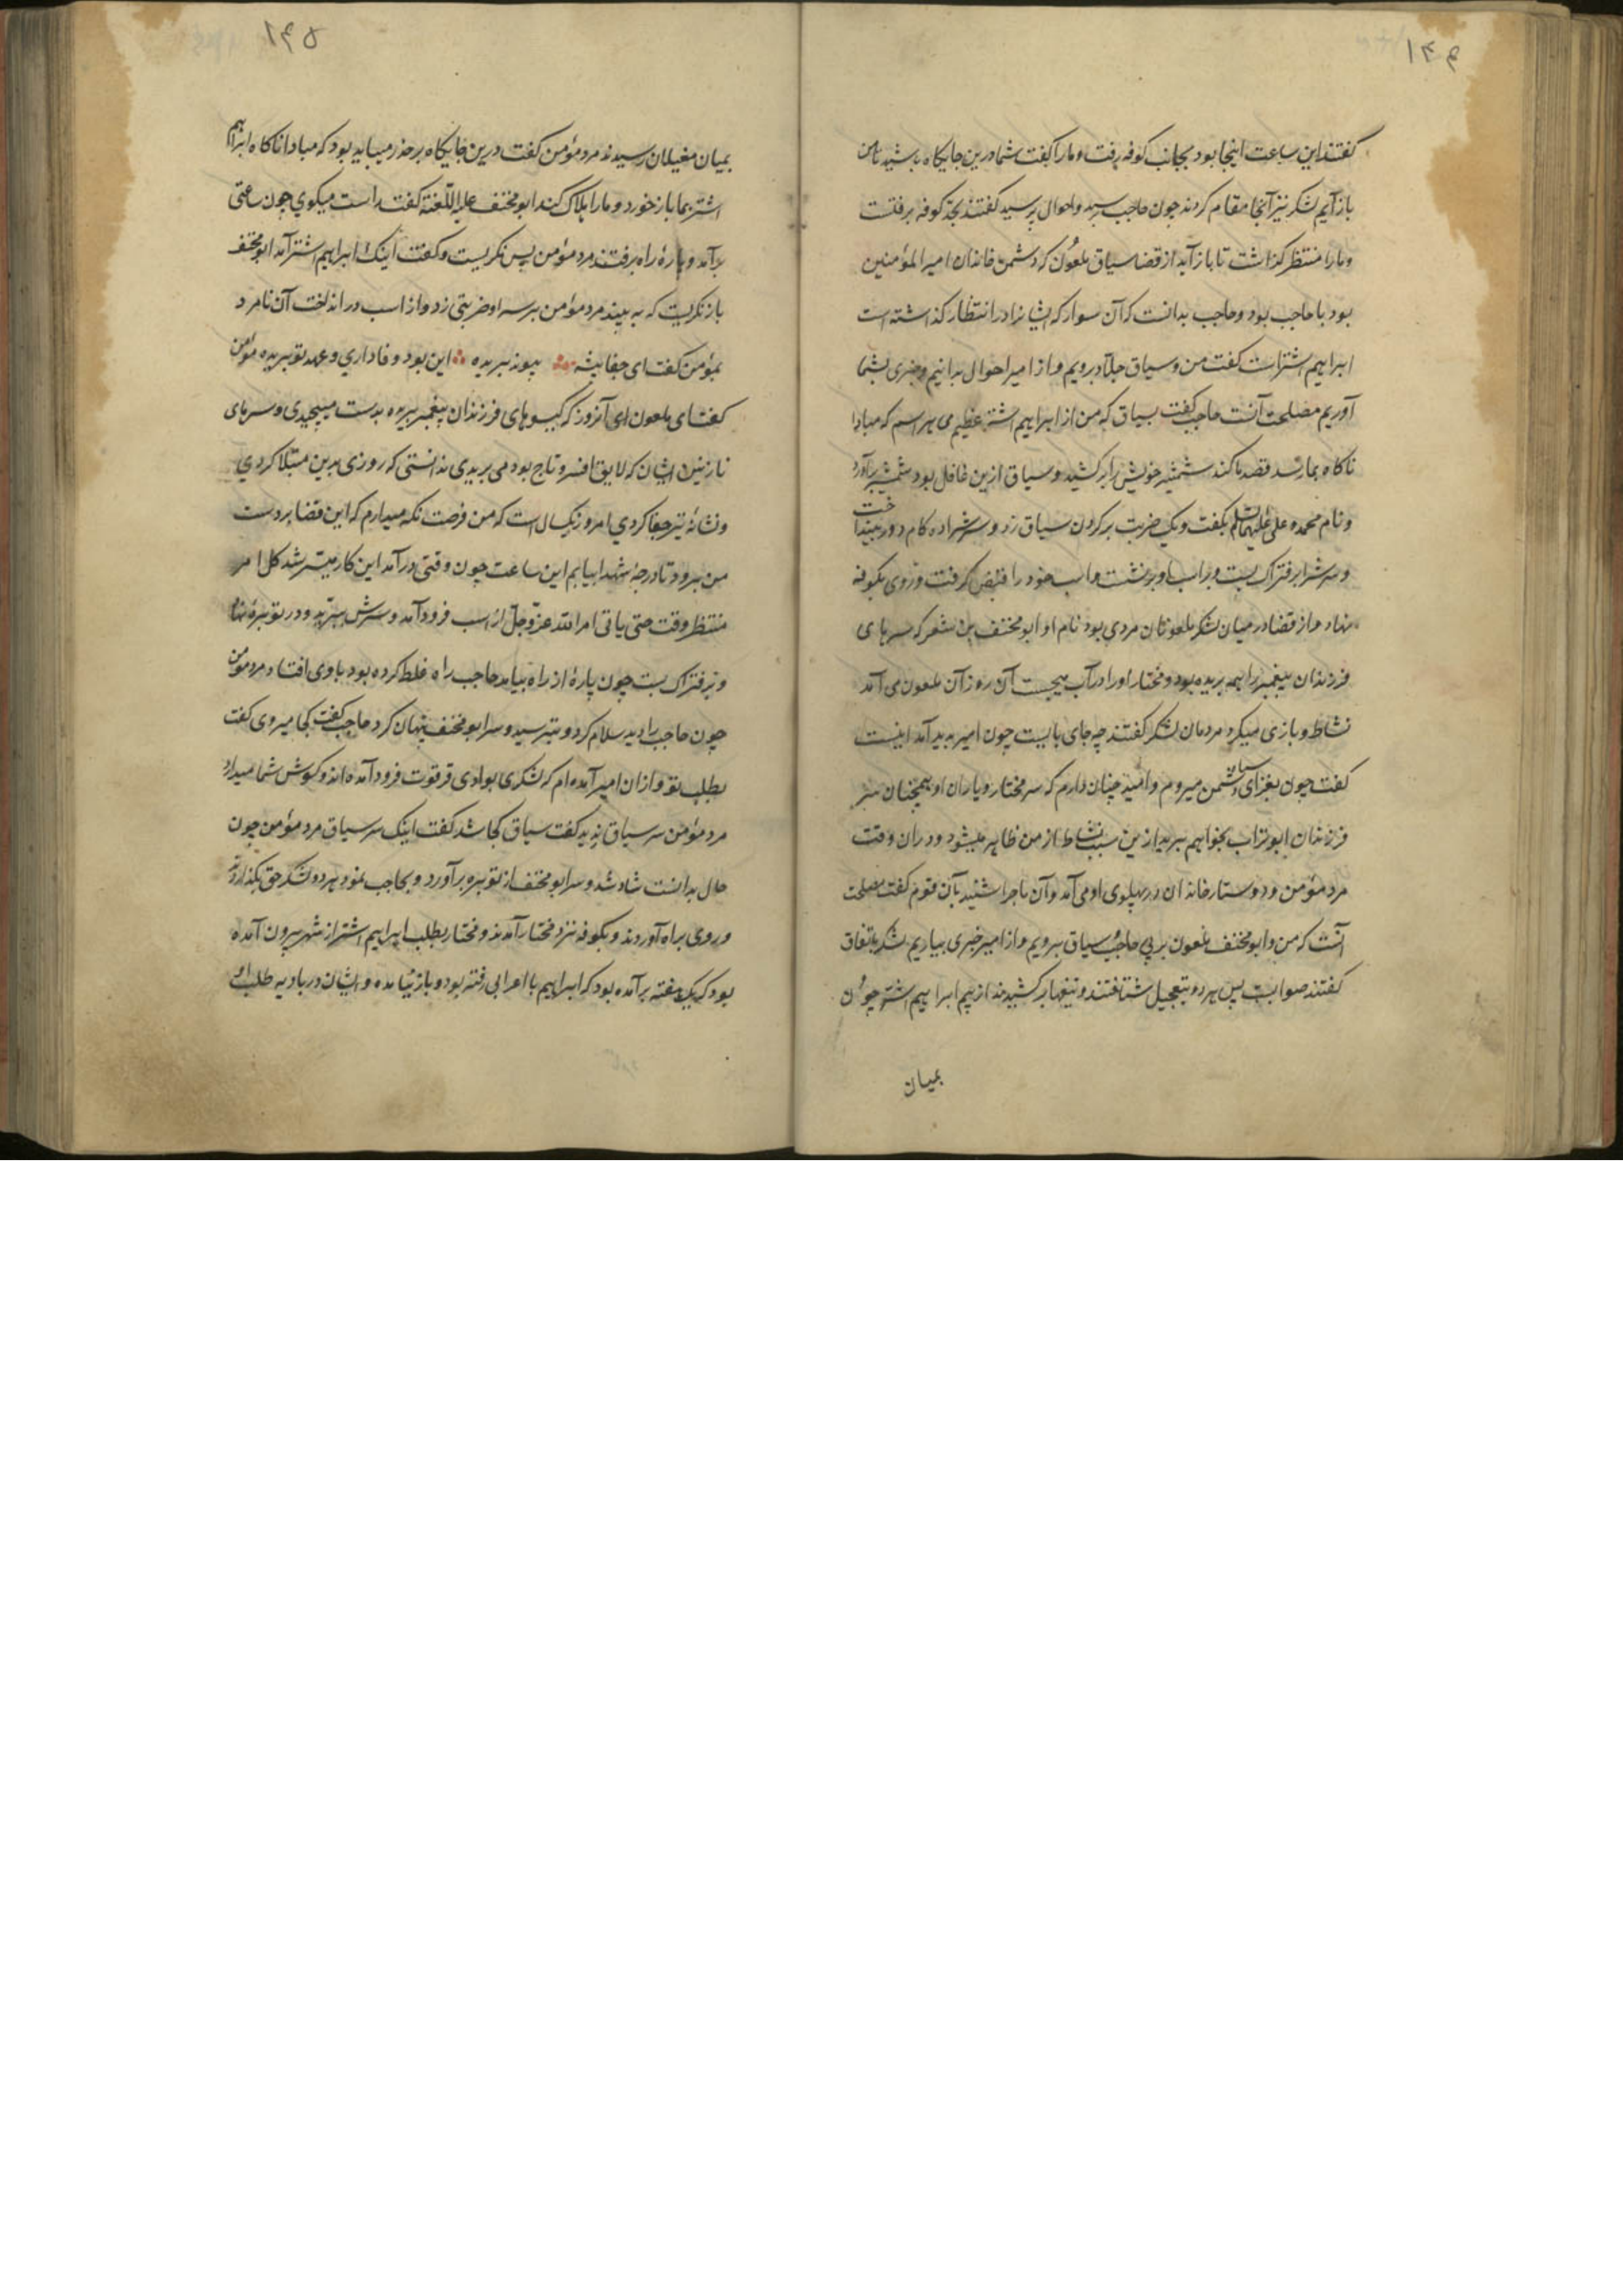 ۱۴۴
کفتند این ساعت اینجا بود بجانب کوفه رفت و ما را کفت شما درین جایکاه باشید تا من
باز آیم لشکر نیز آنجا مقام کردند چون حاجب رسید و احوال پرسید کفتند بحد کوفه برفتست
و ما را منتظر کذاشت تا باز آید از قضا سیاق ملعون که دشمن خاندان امیر المؤمنین
بود با حاجب بود و حاجب بدانست که آن سوار که ایشانرا در انتظار کذاشته است
ابراهیم اشترست کفت من و سیاق جلد برویم و از امیر احوال بدانیم و خبری بشما
آوریم مصلحت آنست حاجب کفت بسیاق که من از ابراهیم اشتر عظیم می هراسم که مبادا
ناکاه بما رسد قصد ما کند شمشیر خویش را برکشید و سیاق ازین غافل بود شمشیر برآورد
و نام محمد و علی علیهما السلم بکفت و یک ضربت بر کردن سیاق زد و سرش را ده کام دور بینداخت
و سرش را بر فتراک بست و بر اسب او بر نشست و اسب خود را قبض کرفت و روی بکوفه
نهاد و از قضا در میان لشکر ملعونان مردی بود نام او ابو مخنف بن شعر که سرهای
فرزندان پیغمبر را همه بریده بود و مختار او را در آب میجست آن روز آن ملعون می آمد
نشاط و بازی میکرد مردمان لشکر کفتند چه جای بازیست چون امیر پدید آمد اینست
کفت چون بغزای دشمن میروم و امید چنان دارم که سر مختار و یاران او همچنان سر
فرزندان ابو تراب بخواهم برید ازین سبب نشاط از من ظاهر میشود و در آن وقت
مرد مؤمن و دوستار خاندان در پهلوی او می آمد و آن ماجرا شنید بآن قوم کفت مصلحت
آنست که من و ابو مخنف ملعون بر پی حاجب و سیاق برویم و از امیر خبری بیاریم لشکر باتفاق
کفتند صوابست پس هر دو بتعجیل شتافتند و تیغها برکشیدند از بیم ابراهیم اشتر چون
بمیان
۱۴۵
بمیان مغیلان رسیدند مرد مؤمن کفت درین جایکاه بر حذر میباید بود که مبادا ناکاه ابراهیم
اشتر بما باز خورد و ما را هلاک کند ابو مخنف علیه اللعنة کفت راست میکوی چون ساعتی
برآمد و پارهٔ راه برفتند مرد مؤمن پس نکریست و کفت اینک ابراهیم اشتر آمد ابو مخنف
باز نکریست که به بیند مرد مؤمن بر سر او ضربتی زد و از اسب در انداخت آن نامرد
بمؤمن کفت ای جفا پیشه پیوند ببریده این بود وفاداری و عهد تو ببریده مؤمن
کفت ای ملعون ای آنروز که کیسوهای فرزندان پیغمبر ببریده بدست میپیچیدی و سرهای
نازنین ایشان که لایق افسر و تاج بود می بریدی ندانستی که روزی بدین مبتلا کردی
و نشانهٔ تیر جفا کردی امروز یکسال است که من فرصت نکه میدارم که این قضا بر دست
من برود تا درجهٔ شهدا بیابم این ساعت چون وقتی در آمد این کار میسر شد کل امر
منتظر وقت حتی یاتی امر الله عز و جل از اسب فرود آمد و سرش ببرید و در توبره نهاد
و بر فتراک بست چون پارهٔ از راه بیامد حاجب راه غلط کرده بود باوی افتاد مرد مؤمن
چون حاجب را دید سلام کرد و بترسید و سر ابو مخنف پنهان کرد حاجب کفت کجا میروی کفت
بطلب تو و از ان امیر آمده ام که لشکری بوادی قرقوت فرود آمده اند و کوش شما میدارد
مرد مؤمن سر سیاق ندید کفت سیاق کجا شد کفت اینک سر سیاق مرد مؤمن چون
حال بدانست شاد شد و سر ابو مخنف از توبره برآورد و بحاجب نمود هر دو شکر حق بگذاردند
و روی براه آوردند و بکوفه نزد مختار آمدند و مختار بطلب ابراهیم اشتر از شهر بیرون آمده
بود که یک هفته برآمده بود که ابراهیم با اعرابی رفته بود و باز نیامده و ایشان در بادیه طلب او